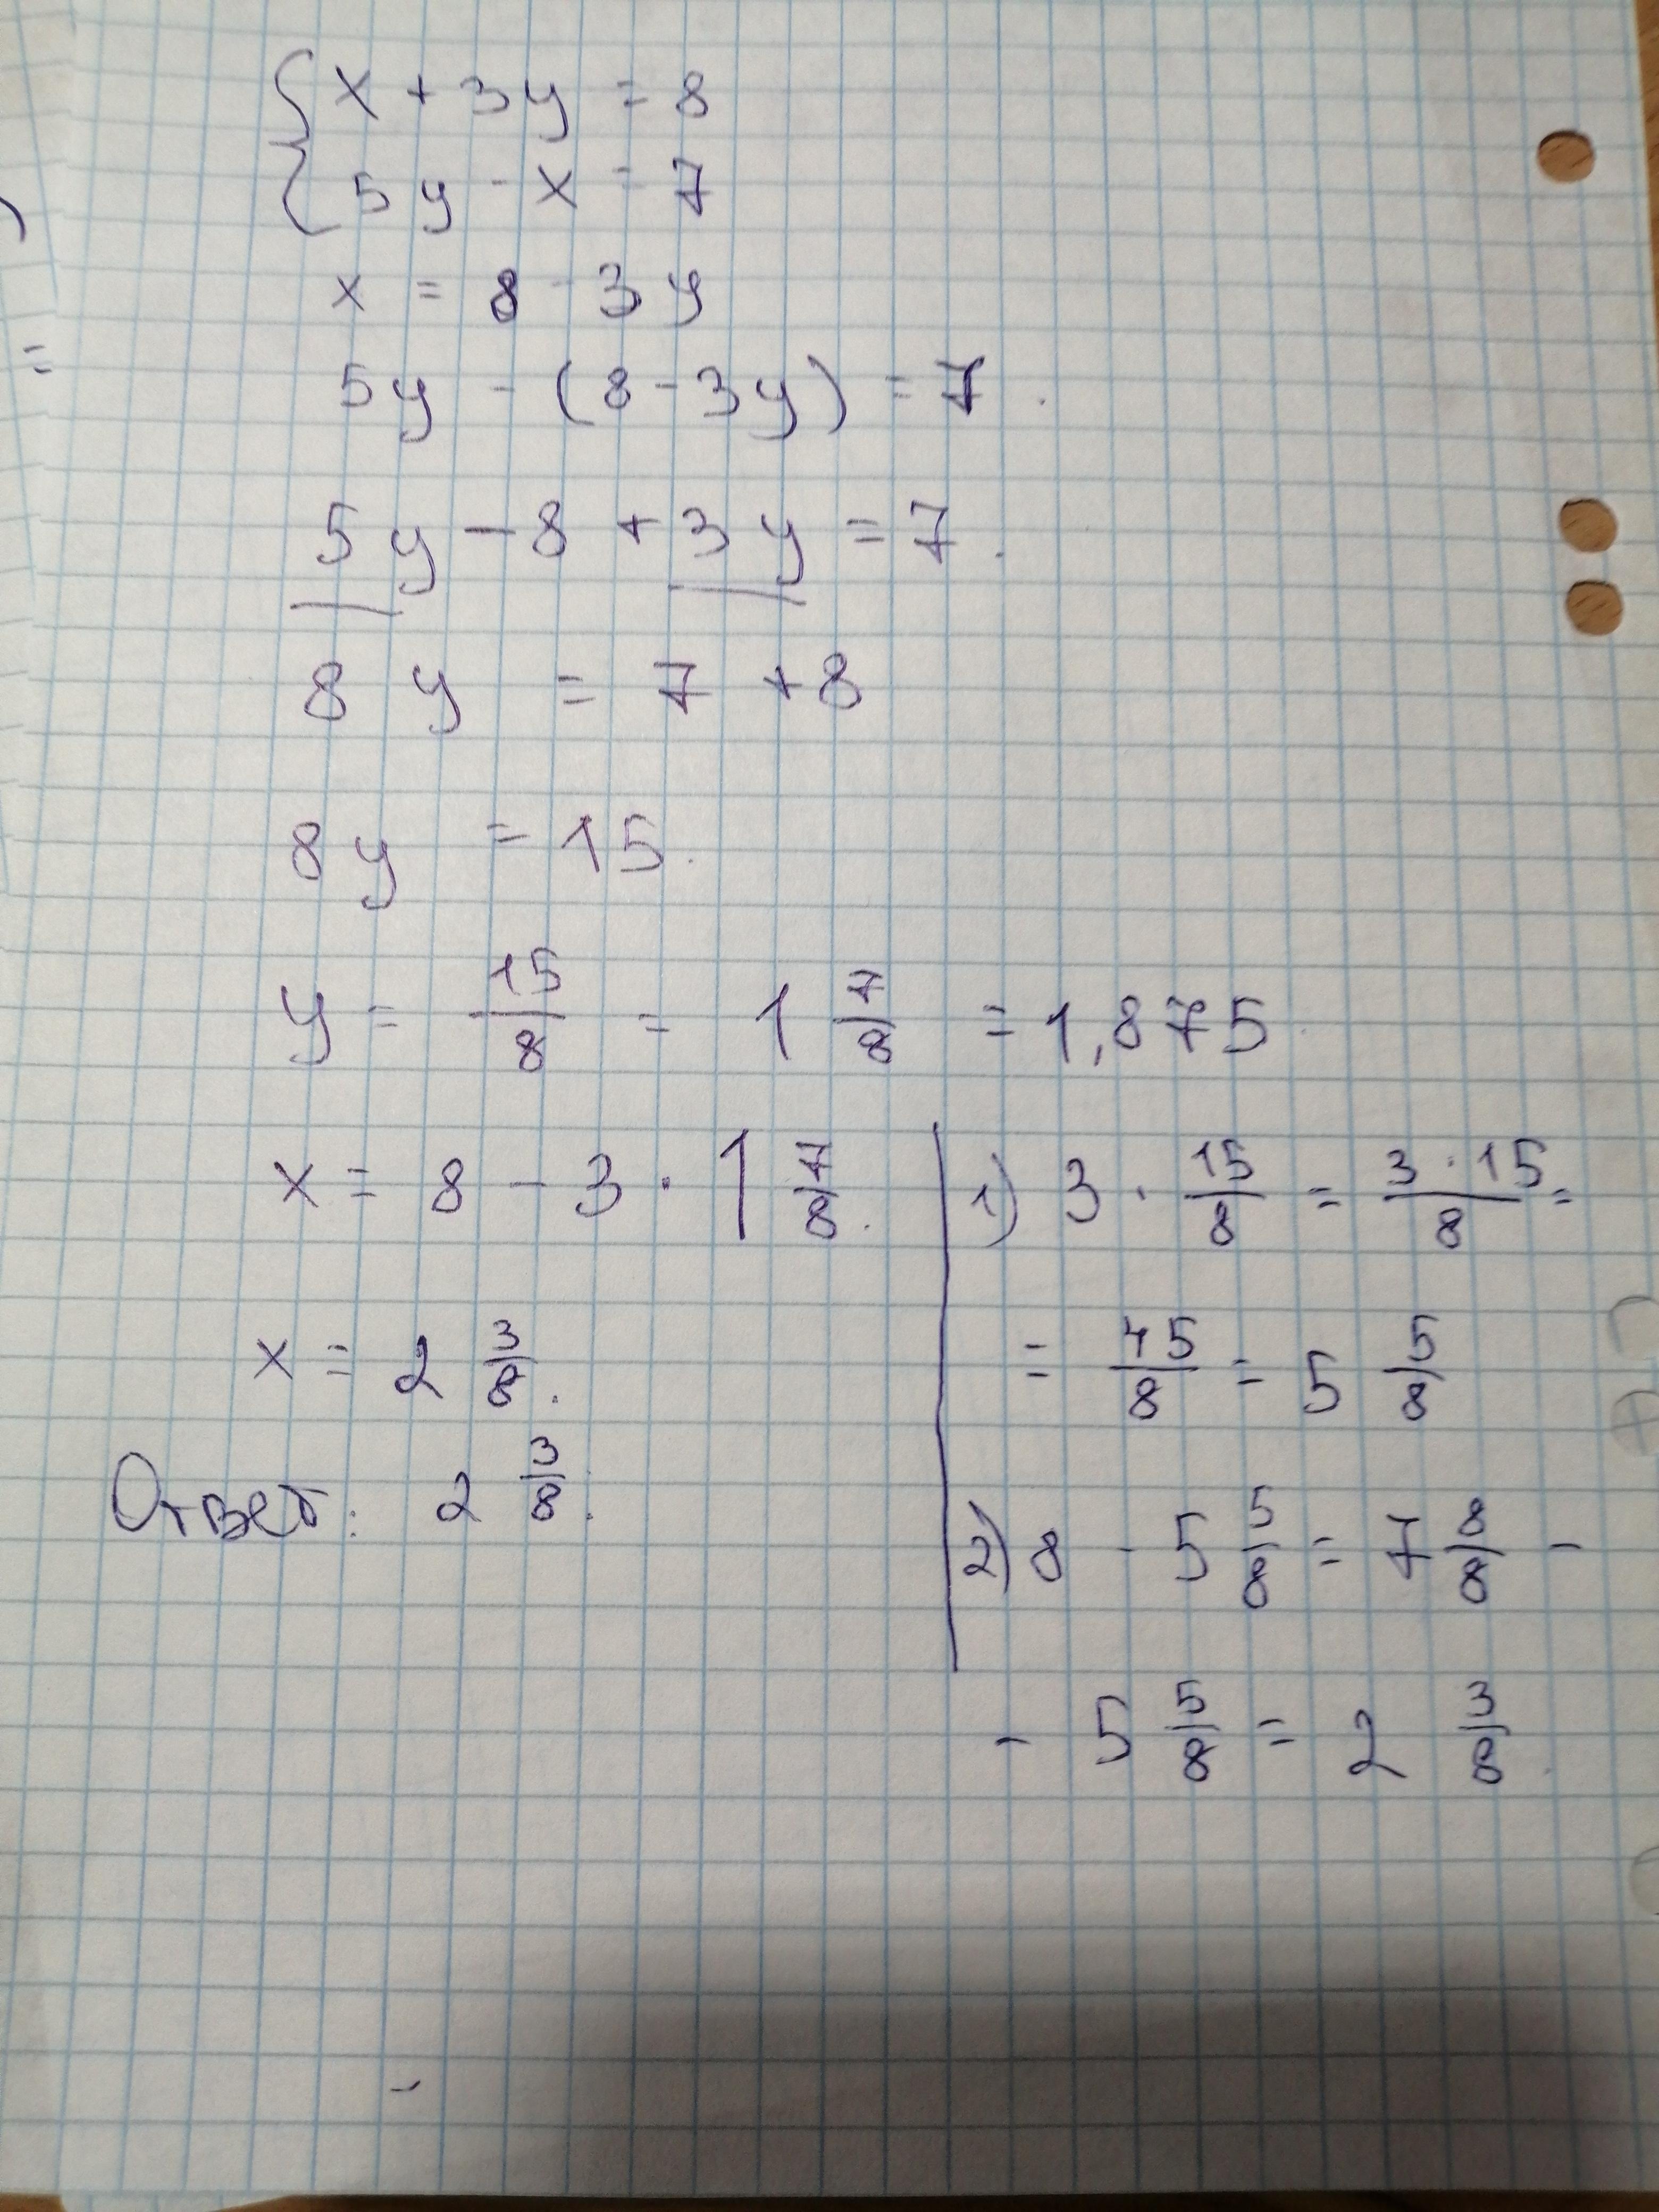 { x + 3y = 8
5y - x = 7
x = 8 - 3y
=
5y - (8 - 3y) = 7.
5y - 8 + 3y = 7.
8y = 7 + 8
8y = 15.
y = 15/8 = 1 7/8 = 1,875
x = 8 - 3 · 1 7/8.
x = 2 3/8.
Ответ: 2 3/8.
1) 3 · 15/8 = 3 · 15/8 =
= 45/8 = 5 5/8
2) 8 - 5 5/8 = 7 8/8 -
- 5 5/8 = 2 3/8.